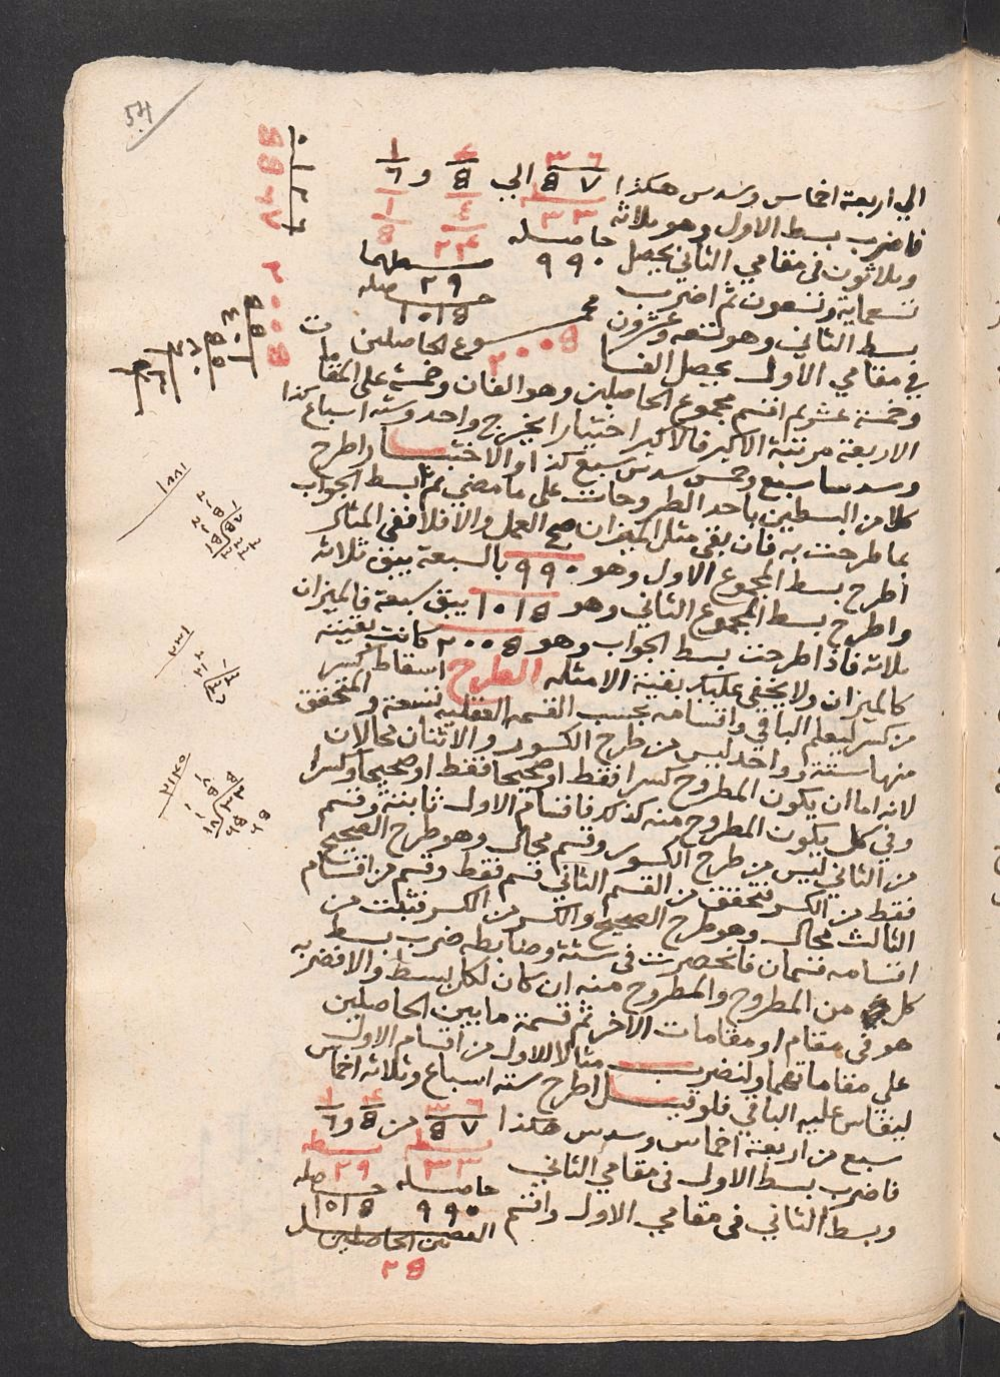 54
الي اربعة اخماس وسدس هكذا ٦ ٣ / ٧ 8 الي ٤ / 8 و ١ / ٦
فاضرب بسط الاول وهو ثلاثة ٣٣ ٢٤
وثلاثون في مقامي الثاني يحصل حاصله ٩٩٠ بسطهما ٢٩
تسعماية وتسعون ثم اضرب حاصله ١٠١8
بسط الثاني وهو تسعة وعشرون مجموع الحاصلين ٢٠٠8
في مقامي الاول يحصل الفا
وخمسة عشر ثم اقسم مجموع الحاصلين وهو الفان وخمسة على المقامات
الاربعة مرتبة الاكبر فالاكبر اختيارا يخرج واحد وستة اسباع كذا
وسدسا سبع وخمس سدس سبع كذا والاختبار اطرح
كلا من البسطين باحد الطروحات على ما مضي ثم ابسط الجواب
بما طرحت به فان بقي مثل الميزان صح العمل والا فلا ففي المثال
اطرح بسط المجموع الاول وهو ٩٩٠ بالسبعة يبق ثلاثة
واطرح بسط المجموع الثاني وهو ١٠١8 يبق سبعة فالميزان
ثلاثة فاذا طرحت بسط الجواب وهو ٢٠٠8 كانت بقيته
كالميزان ولا يخفي عليك بقية الامثلة الطرح اسقاط كسر
من كسر ليعلم الباقي واقسامه بحسب القسمة العقلية تسعة والمتحقق
منها ستة وواحد ليس من طرح الكسور والاثنان محالان
لانه اما ان يكون المطروح كسرا فقط او صحيحا فقط او صحيحا وكسرا
وفي كل يكون المطروح منه كذلك فاقسام الاول ثابتة وقسم
من الثاني ليس من طرح الكسور وقسم محال وهو طرح الصحيح
فقط من الكسر فتحقق من القسم الثاني قسم فقط وقسم من اقسام
الثالث محال وهو طرح الصحيح والكسر من الكسر فثبت من
اقسامه قسمان فانحصرت في ستة وضابطه ضرب بسط
كل من المطروح والمطروح منه ان كان لكل بسط والا فضربه
هو في مقام او مقامات الاخر ثم قسمة ما بين الحاصلين
علي مقاماتهما ولنضرب مثالا للاول من اقسام الاول
ليقاس عليه الباقي فلو قيل اطرح ستة اسباع وثلاثة اخماس
سبع من اربعة اخماس وسدس هكذا ٦ ٣ / ٧ 8 من ٤ / 8 و ١ / ٦
فاضرب بسط الاول في مقامي الثاني بسطه ٣٣ بسطه ٢٩
وبسط الثاني في مقامي الاول واقسم حاصله ٩٩٠ حاصله ١٠١8
الفضل بين الحاصلين
٢8